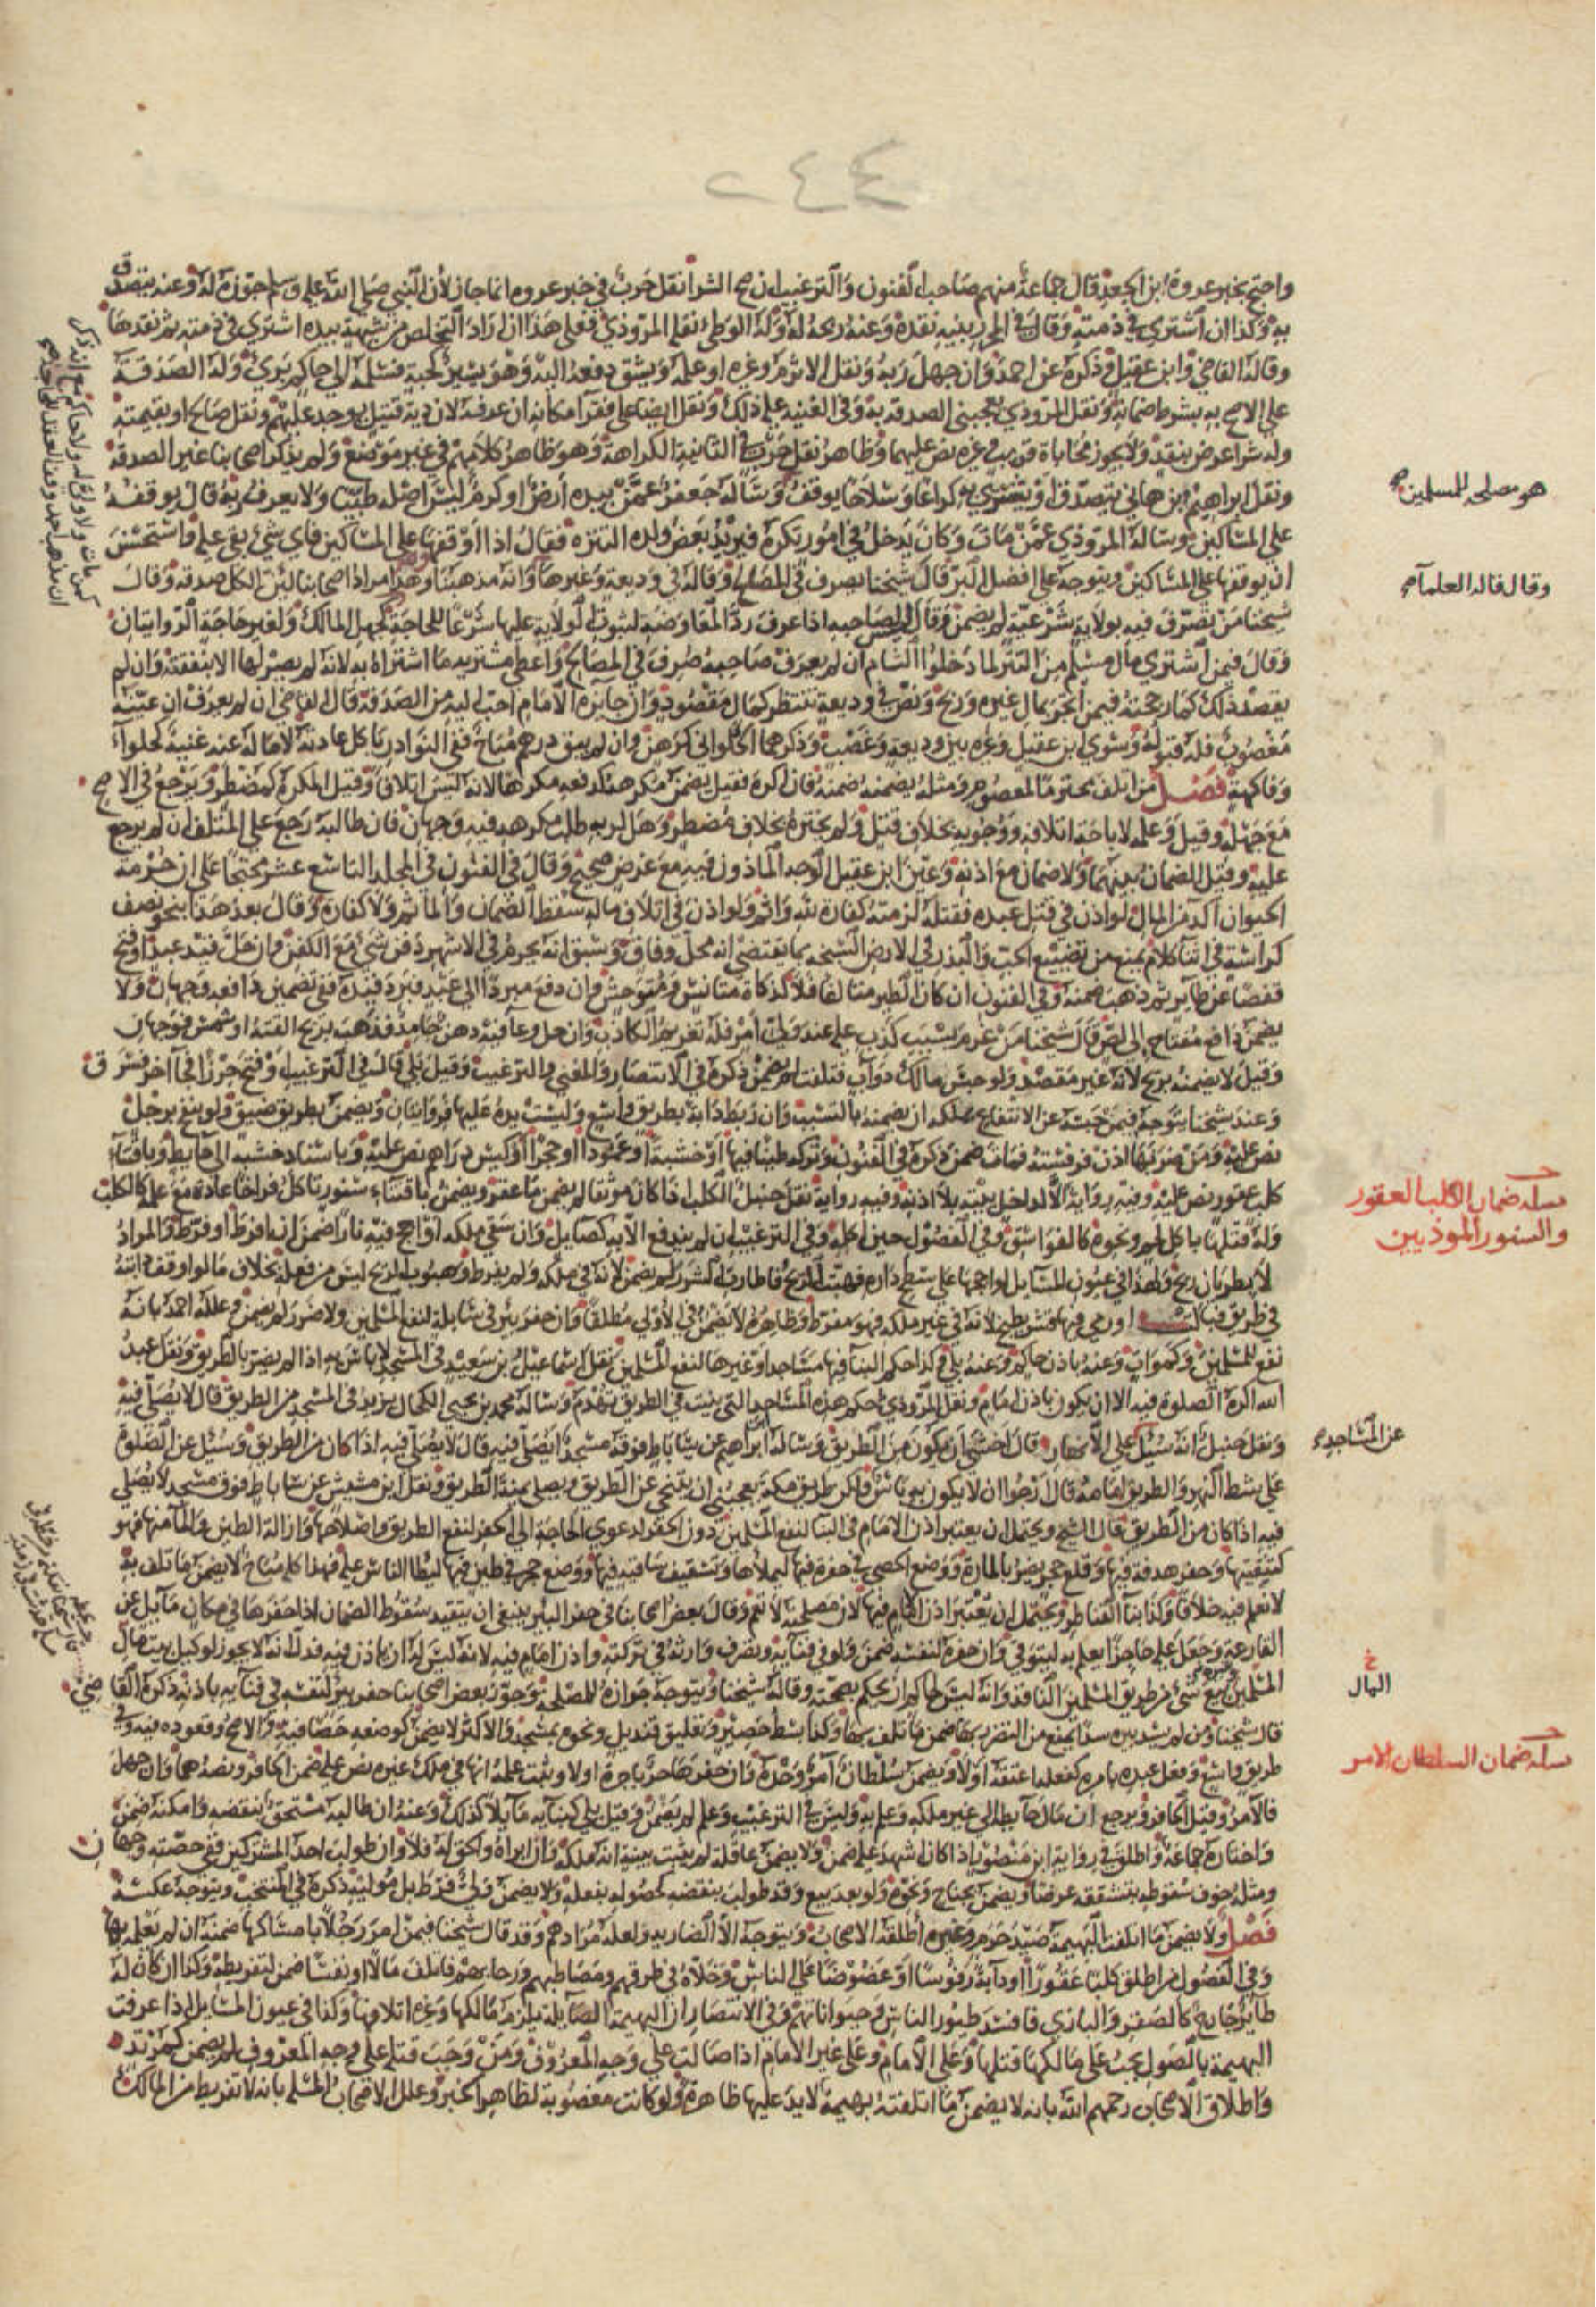 ٢٤٤
واحتج بخبر عروة ابن الجعد قال جماعة منهم صاحب الفنون والترغيب ان صح الشرا نقل حرب في خبر عروه انما جاز لأن النبي صلى الله عليه وسلم جوزه له وعنه يتصدق
به وكذا ان اشترى في ذمته وقال في المحرر بنيه نقده وعنه ربحه له وله الوطء نقله المروذي فعلى هذا ان اراد التخلص من شبهة بيده اشترى في ذمته ثم نقدها
وقاله القاضي وابن عقيل وذكره عن احمد وان جهل ربه ونقل الاثرم وغيره او علمه ويشق دفعه اليه وهو يسير كحبة فسلمه الى حاكم بري وله الصدقة
على الاصح به بشرط ضمانه ونقل المروذي يعجبني الصدقه به وفي الغنيه عليه ذلك ونقل ايضا على فقرا مكانه ان عرفه لان دية قتيل يوجد عليهم ونقل صالح او بقيمته
وله شرا عرض بنقد ولا يجوز محاباة قريب وغيره نص عليهما وظاهر نقل حرب في الثانية الكراهة وهو ظاهر كلامهم في غير موضع ولم يذكر اصحابنا غير الصدقه
ونقل ابراهيم بن هاني يتصدق او يشتري به كراعا وسلاحا يوقف وساله جعفر عمن بيده ارض او كرم ليس اصله طيبا ولا يعرف ربه قال يوقفه
على المساكين وساله المروذي عمن مات وكان يدخل في امور تكره فيريد بعض ولده التنزه فقال اذا اوقفها على المساكين فاي شيء بقي عليه واستحسن
ان يوقفها على المساكين ويتوجه على افضل البر قال شيخنا يصرف في المصالح وقاله في وديعة وغيرها وانه مذهبنا وهذا مراد اصحابنا لأن الكل صدقه وقال
شيخنا من تصرف فيه بولاية شرعية لم يضمن وقال ليس لصاحبه اذا عرف رد المعاوضة لثبوت الولاية عليها شرعا للحاجة كجهل المالك ولغير حاجة الروايتان
وقال فيمن اشترى مال مسلم من التتر لما دخلوا الشام ان لم يعرف صاحبه صرف في المصالح واعطى مشتريه ما اشتراه به لانه لم يصر لها الا بنفقته وان لم
يقصد ذلك كما رجحته فيمن اتجر بمال غيره وربح ونص في وديعة تنتظر كمال مفقود وان جايزه الامام احب اليه من الصدقة قال القاضي ان لم يعرف ان عينه
مغصوب فله قبوله وسوى ابن عقيل وغيره بين وديعة وغصب وذكرهما الحلواني كرهن وان لم يبق درهم مباح ففي النوادر ياكل عادته لا ماله عنه غنية كحلواء
وفاكهة فصل من اتلف محترما لمعصوم ومثله يضمنه ضمنه فان اكره فقيل يضمن مكرهه كدفعه مكرها لانه ليس اتلافا وقيل المكره كمضطر ويرجع في الاصح
مع جهله وقيل وعلمه لاباحة اتلافه ووجوبه بخلاف قتل ولم يختره بخلاف مضطر وهل لربه طلب مكرهه فيه وجهان فان طالبه رجع على المتلف ان لم يرجع
عليه وقيل الضمان بينهما ولا ضمان مع اذنه وعين ابن عقيل الوجه الماذون فيه مع غرض صحيح وقال في الفنون في المجلد التاسع عشر محتجا على ان حرمة
الحيوان آكد من المال لو اذن في قتل عبده فقتله لزمته كفارة لله واثم ولو اذن في اتلاف ماله سقط الضمان والماثم ولا كفارة وقال بعد هذا بنحو نصف
كراسة في اثنا كلام يمنع من تضييع الحب والبذر في الارض السبخة بما يقتضي انه محل وفاق وسبق انه يحرم في الاشهر دفن شيء مع الكفن وان حل قيد عبد او فتح
قفصا عن طاير ثم ذهب ضمنه وفي الفنون ان كان الطير متالفا فلا كذكاة متانس ومتوحش وان دفع مبردا الى عبد فبرد قيده ففي تضمين دافعه وجهان ولا
يضمن دافع مفتاح الى لص قال شيخنا من غرم بسبب كذب عليه عند ولي امر فله تغريم الكاذب وان حل وعا فيه دهن جامد فذهب بريح القته او شمس فوجهان
وقيل لا يضمنه بريح لانه غير مقصد ولو حبس مالك دواب فتلفت لم يضمن ذكره في الانتصار والمغني والترغيب وقيل بلى قال في الترغيب وفتح حرزا فجا آخر فسرق
وعند شيخنا يتوجه فيمن حبسه عن الانتفاع بملكه ان يضمنه بالتسبب وان ربط دابة بطريق واسع وليست يده عليها فروايتان ويضمن بطريق ضيق ولو بنفح برجل
نص عليه ومن ضربها اذن فرفسته فمات ضمن ذكره في الفنون وتركه طينا فيها او خشبة او عمودا او حجرا او كيس دراهم نص عليه وباسناد خشبه الى حايط وباقتناء
كلب عقور نص عليه وفيه رواية الا لداخل بيته بلا اذنه وفيه رواية نقل حنبل الكلب اذا كان موثقا لم يضمن ما عقر ويضمن باقتناء سنور تاكل فراخا عادة مع علمه كالكلب
وله قتلها باكل لحم ونحوه كالفواسق وفي الفصول حين اكله وفي الترغيب ان لم يندفع الا به كصايل وان سقى ملكه او اجج فيه نارا ضمن ان افرط او فرط والمراد
لا بطريان ريح ولهذا في عيون المسايل لو اججها على سطح داره فهبت الريح فاطارت الشرر لم يضمن لانه في ملكه ولم يفرط وهبوب الريح ليس من فعله بخلاف ما لو اوقف دابته
في طريق فبالت او رمى فيها قشر بطيخ لانه في غير ملكه فهو مفرط وظاهره لا يضمن في الاولى مطلقا وان حفر بئر في سابلة لنفع المسلمين ولا ضرر لم يضمن وعلله احمد بانه
نفع للمسلمين وكموات وعنه باذن حاكم وعنه بلى وكذا حكم البنا فيها مساجد او غيرها لنفع المسلمين نقل اسماعيل بن سعيد في المسجد لا باس به اذا لم يضر بالطريق ونقل عبد
الله اكره الصلوة فيه الا ان يكون باذن امام ونقل المروذي حكم هذه المساجد التي بنيت في الطريق تهدم وساله محمد بن يحيى الكحال يزيد في المسجد من الطريق قال لا يصلى فيه
ونقل حنبل انه سئل على الانهار قال اخشى ان يكون من الطريق وساله ابراهيم عن ساباط فوقه مسجد ايصلى فيه قال لا يصلى فيه اذا كان من الطريق وسئل عن الصلوة
على شط النهر والطريق امامه قال ارجوا ان لا يكون به باس ولكن طريق مكة يعجبني ان يتنحى عن الطريق ويصلي يمنة الطريق ونقل ابن مشيش عن ساباط فوق مسجد لا يصلى
فيه اذا كان من الطريق قال الشيخ ويحتمل ان يعتبر اذن الامام في البنا لنفع المسلمين دون الحفر لدعوى الحاجة الى الحفر لنفع الطريق واصلاحها وازالة الطين والما منها فهو
كتنقيتها وحفر هدفة فيها وقلع حجر يضر بالمارة ووضع الحصى في حفرة فيها ليملأها وتسقيف ساقيه فيها ووضع حجر في طين فيها ليطا الناس عليه فهذا كله مباح لا يضمن ما تلف به
لا نعلم فيه خلافا وكذا بنا القناطر ويحتمل ان يعتبر اذن الامام فيها لان مصلحته لا تعم وقال بعض اصحابنا في حفر البير ينبغي ان يتقيد سقوط الضمان اذا حفرها في مكان مايل عن
القارعة وجعل عليه حاجزا يعلم به ليتوقى وان حفره لنفسه ضمن ولو في فنايه وتصرف وارثه في تركته واذن امام فيه لانه ليس له ان ياذن فيه فدل انه لا يجوز لوكيل بيت مال
المسلمين بيع شيء من طريق المسلمين النافذ وانه ليس لحاكم ان يحكم بصحته وقاله شيخنا ويتوجه جوازه للمصلحة وجوز بعض اصحابنا حفر بئر لنفسه في فنايه باذنه ذكره القاضي
قال شيخنا ومن لم يسد بيره سدا يمنع من التضرر بها ضمن ما تلف بها وكذا بسط حصير وتعليق قنديل ونحوه بمسجد والاكثر لا يضمن كوضعه حصا فيه والاصح وقعوده فيه وفي
طريق واسع وفعل عبده بامره كفعله اعتقه اولا ويضمن سلطان آمر وحده وان حفر حر باجرة اولا وثبت علمه انها في ملك غيره نص عليه ضمن الحافر ونصه هما وان جهل
فالآمر وقيل الحافر ويرجع ان مال حايطه الى غير ملكه وعلم به وليس في الترغيب وعلم لم يضمن وقيل بلى كبنايه مايلا كذلك وعنه ان طالبه مستحق بنقضه وامكنه ضمن
واختاره جماعة واطلق في رواية ابن منصور اذا كان اشهد عليه ضمن ولا يضمن عاقلة لم يثبت ببينة انه ملكه وان ابراه والحق له فلا وان طولب احد المشتركين ففي حصته وجهان
ومثله خوف سقوطه بتشققه عرضا ويضمن بجناح ونحوه ولو بعد بيع وقد طولب بنقضه لحصوله بفعله ولا يضمن ولي فرط بل موليه ذكره في المنتخب ويتوجه عكسه
فصل ولا يضمن ما اتلفت البهيمة صيد حرم وغيره اطلقه الاصحاب ويتوجه الا الضاريه ولعله مرادهم وقد قال شيخنا فيمن امر رجلا بامساكها ضمنه ان لم يعلمه بها
وفي الفصول من اطلق كلبا عقورا او دابة رفوسا او عضوضا على الناس وخلاه في طرقهم ومصاطبهم ورحابهم فاتلف مالا او نفسا ضمن لتفريطه وكذا ان كان له
طاير جارح كالصقر والبازي فافسد طيور الناس وحيواناتهم وفي الانتصار ان البهيمة الصايلة يلزم مالكها وغيره اتلافها وكذا في عيون المسايل اذا عرفت
البهيمة بالصول يجب على مالكها قتلها وعلى الامام وعلى غير الامام اذا صالت على وجه المعروف ومن وجب قتله على وجه المعروف لم يضمن كمرتد
واطلاق الاصحاب رحمهم الله بانه لا يضمن ما اتلفته بهيمة لا يد عليها ظاهرة ولو كانت مغصوبة لظاهر الخبر وعلل الاصحاب المسلة بانه لا تفريط من المالك
هو مصلحه للمسلمين صح
وقال قاله العلمآ صح
مسله ضمان الكلب العقور
والسنور الموذيين
عن المساجد صح
خ
المال
مسله ضمان السلطان الآمر